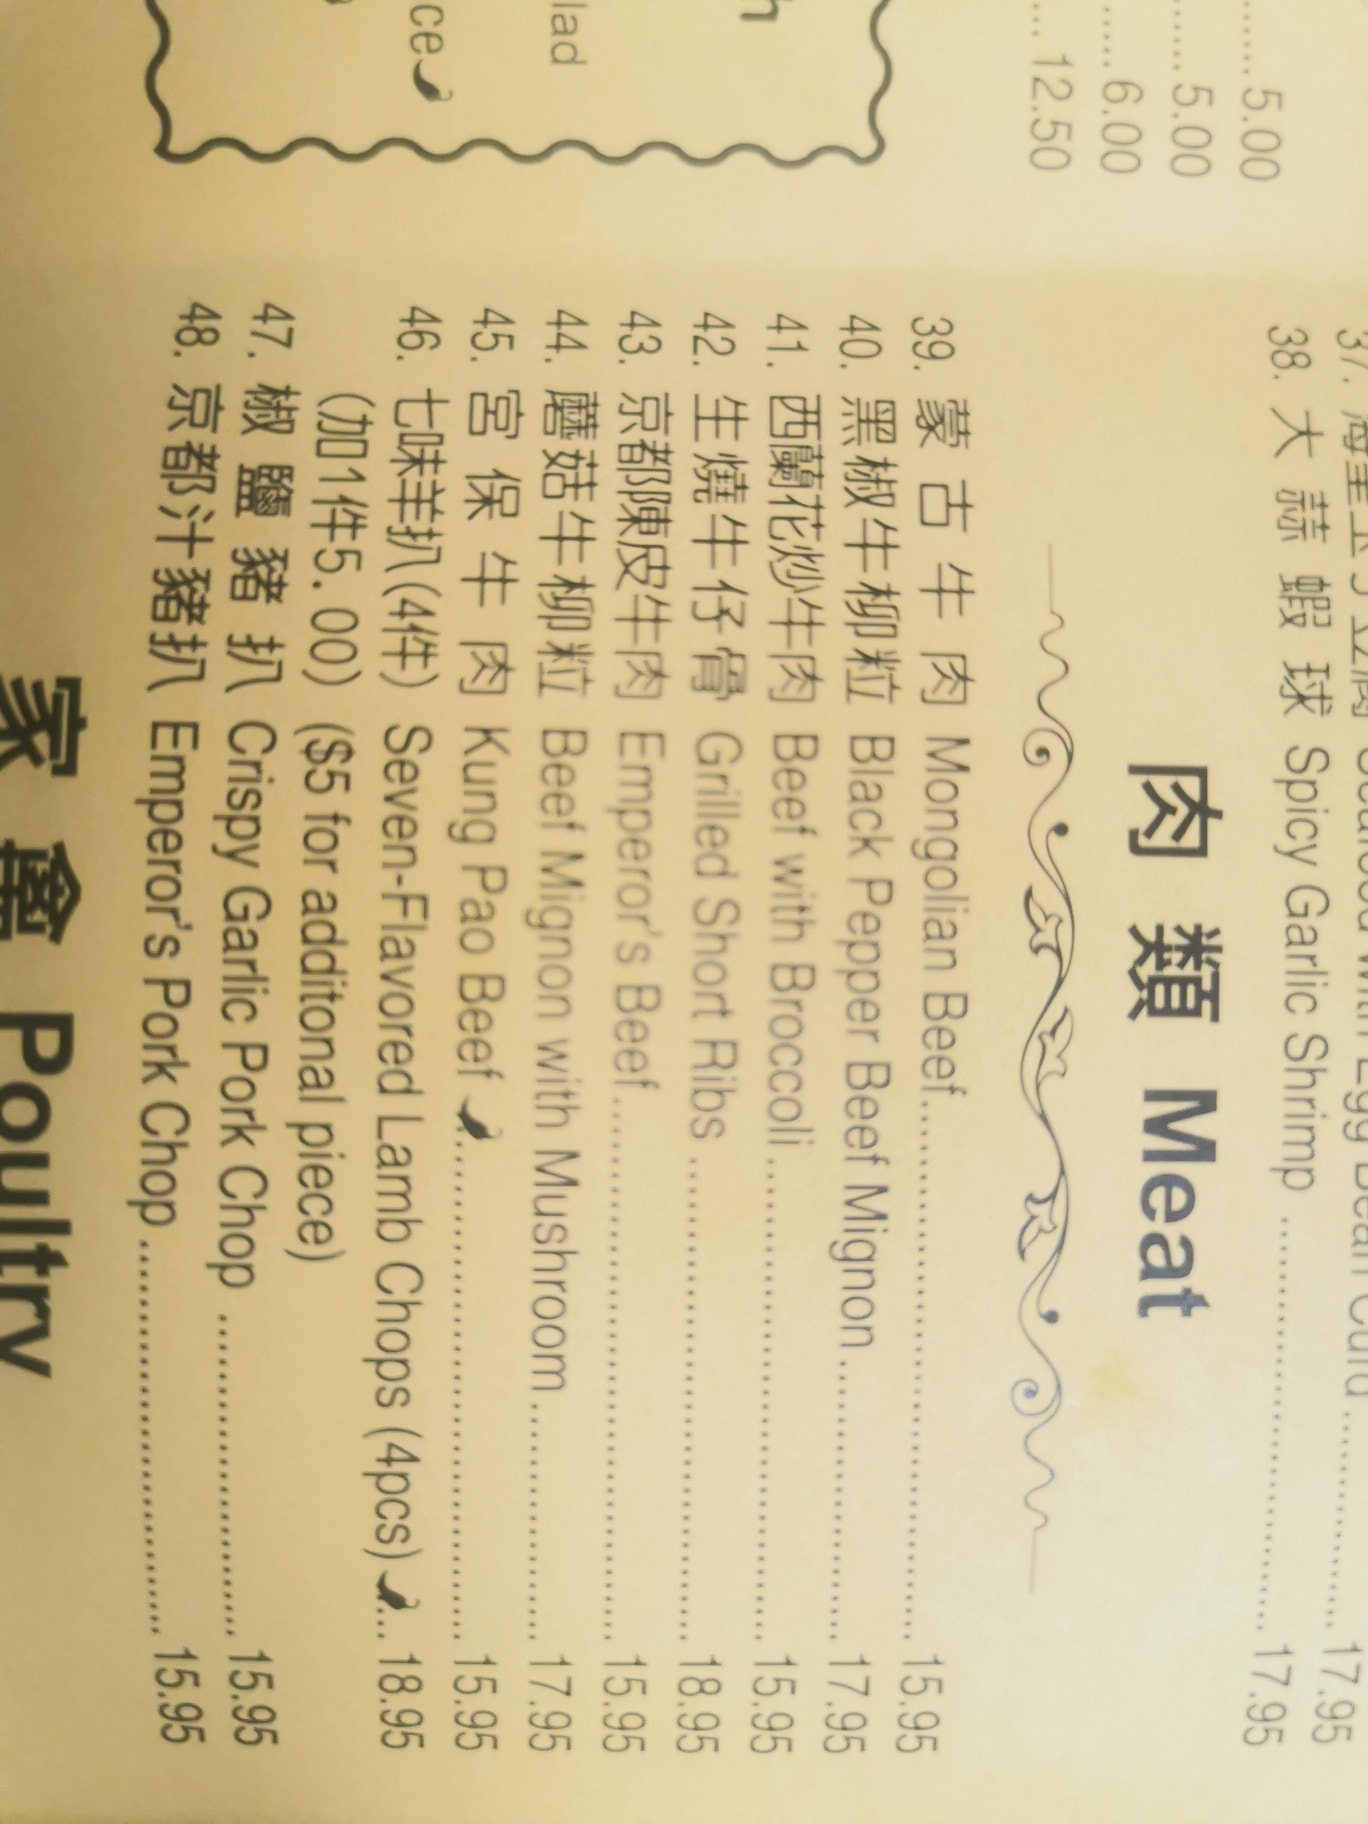 lad
ce
5.00
5.00
6.00
12.50
37.
with Egg Bean Curd 17.95
38. 大 蒜 蝦 球 Spicy Garlic Shrimp 17.95
肉 類 Meat
39. 蒙 古 牛 肉 Mongolian Beef 15.95
40. 黑椒牛柳粒 Black Pepper Beef Mignon 17.95
41. 西蘭花炒牛肉 Beef with Broccoli 15.95
42. 生燒牛仔骨 Grilled Short Ribs 18.95
43. 京都陳皮牛肉 Emperor's Beef 15.95
44. 蘑菇牛柳粒 Beef Mignon with Mushroom 17.95
45. 宮 保 牛 肉 Kung Pao Beef 15.95
46. 七味羊扒(4件) Seven-Flavored Lamb Chops (4pcs) 18.95
(加1件5.00) ($5 for additonal piece)
47. 椒 鹽 豬 扒 Crispy Garlic Pork Chop 15.95
48. 京都汁豬扒 Emperor's Pork Chop 15.95
家 禽 Poultry